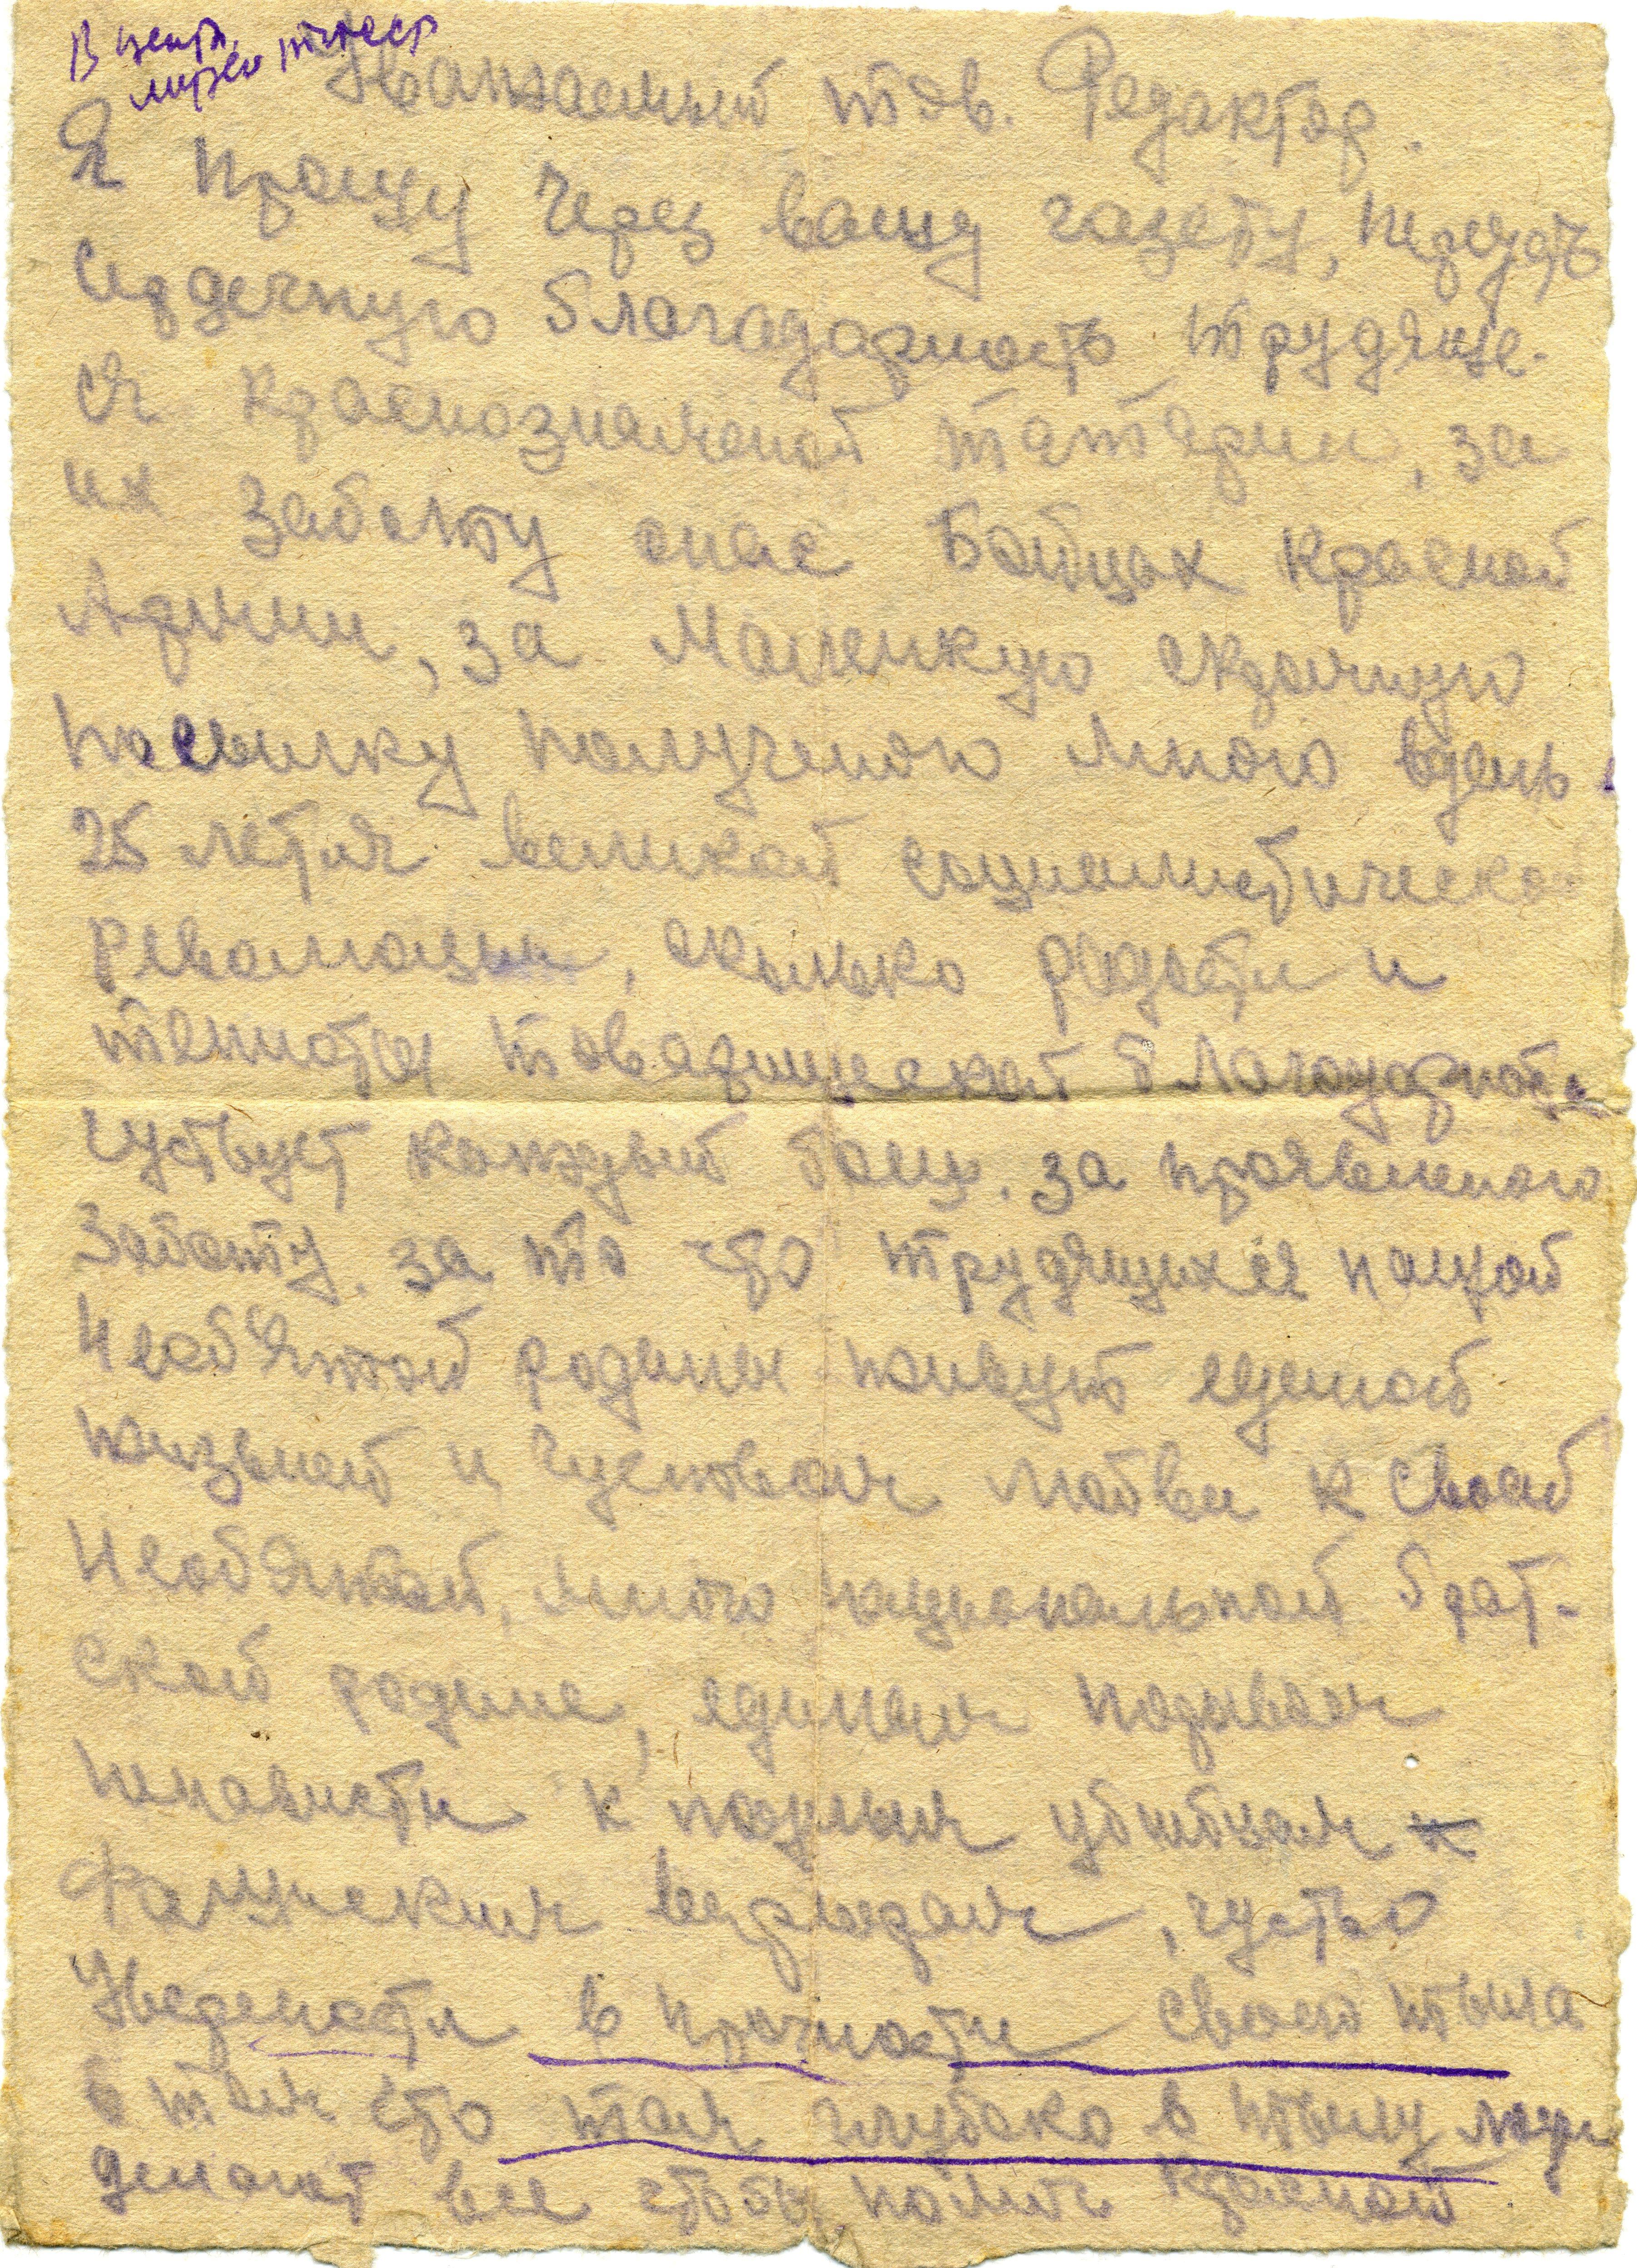 В центр.
музей
Уважаемый тов. Редактор.
Я прошу через вашу газету, передать
сердечную благадарность трудяще-
ся краснознаменой татарии, за
их заботу о нас Бойцах красной
Армии, за маленькую скромную
посылку полученою мною вдень
25 летия великой социалистической
революции, сколько радости и
теплоты товарищеской благодарности
чуствует каждый боец. за проявленою
Заботу. за то что трудящихся нашой
Необ'ятой родины живут единой
жизьней и чуством любви к своей
Необ'ятой, много национальной брат-
ской родине, единым порывом
ненависти к подлым убийцам к
Фашиским выродкам, чуство
Уверености в прочности своего тыла
в том что там глубоко в тылу люди
делают все чтобы помич красной